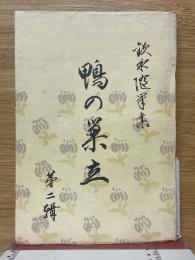 飲水随筆集
鴨の巣立
第二輯